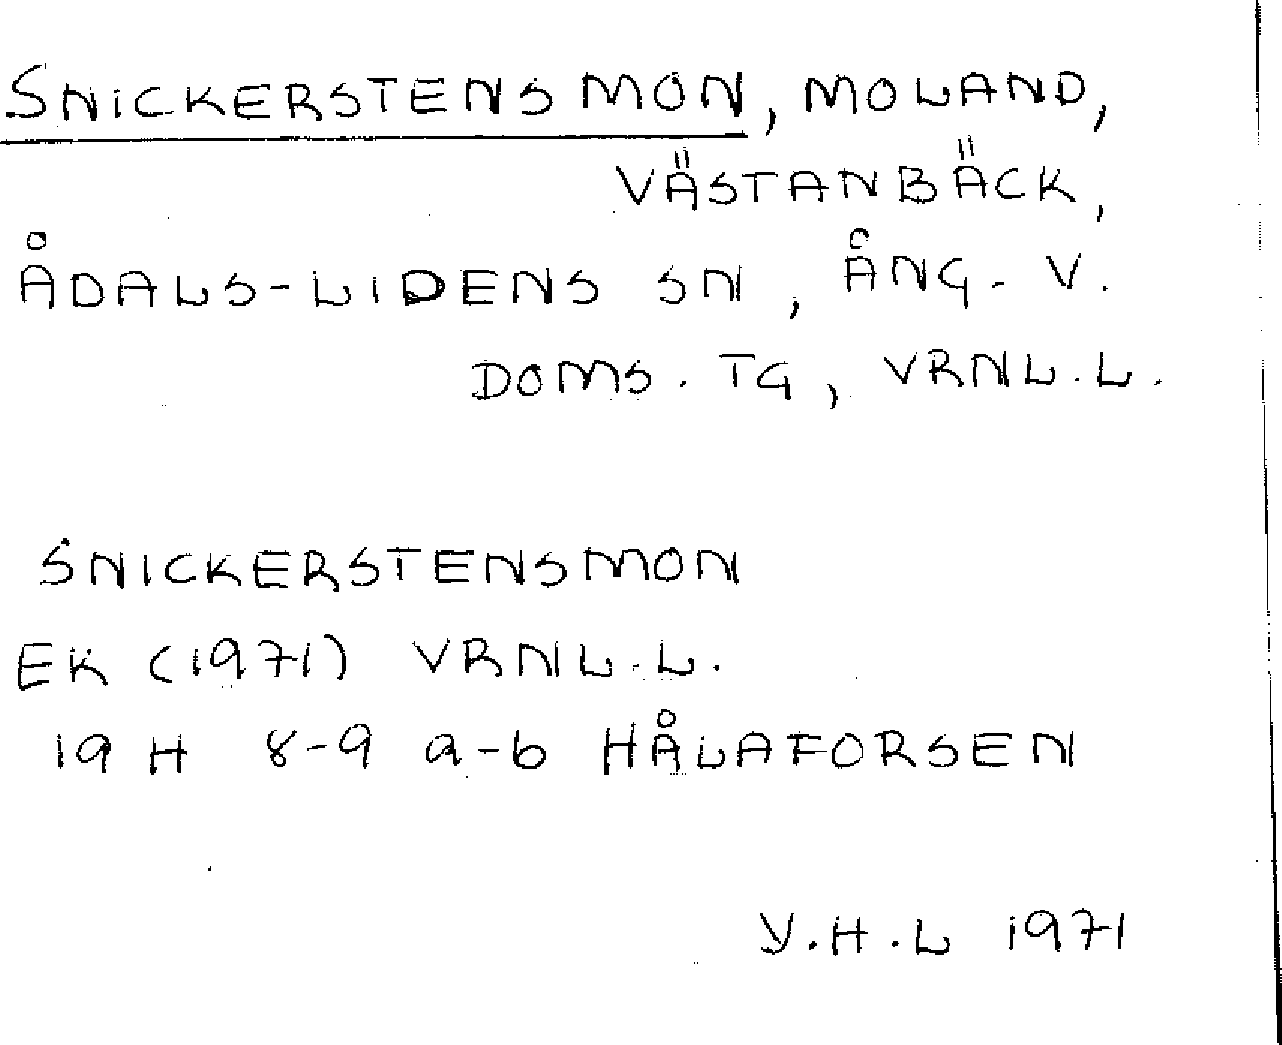 SNICKERSTENSMON, MOLAND,
VÄSTANBÄCK,
ÅDALS-LIDENS SN, ÅNG. V.
DOMS. TG, VRNL.L.
SNICKERSTENSMON
EK (1971) VRNL.L.
19 H 8-9 a-b HÅLAFORSEN
Y.H.L 1971